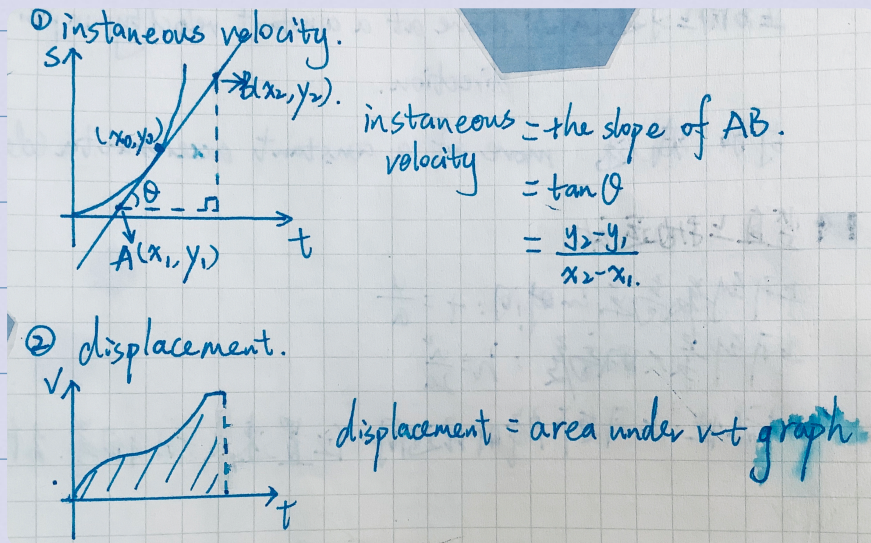 ① instaneous velocity.
S
B(x₂,y₂).
(x₀,y₀)
θ
t
A(x₁,y₁)
instaneous velocity = the slope of AB.
= tanθ
= y₂-y₁ / x₂-x₁.
② displacement.
V
t
displacement = area under v-t graph